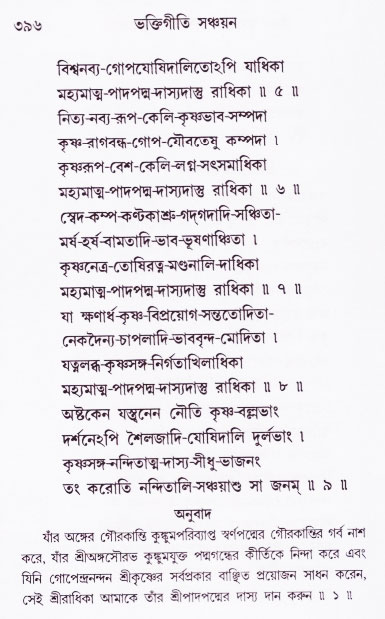 ৩৯৬ ভক্তিগীতি সঞ্চয়ন
বিশ্বনব্য-গোপযোষিদালিতোঽপি যাধিকা
মহ্যমাত্ম-পাদপদ্ম-দাস্যদাস্তু রাধিকা ॥ ৫ ॥
নিত্য-নব্য-রূপ-কেলি-কৃষ্ণভাব-সম্পদা
কৃষ্ণ-রাগবন্ধ-গোপ-যৌবতেষু কম্পদা ।
কৃষ্ণরূপ-বেশ-কেলি-লগ্ন-সৎসমাধিকা
মহ্যমাত্ম-পাদপদ্ম-দাস্যদাস্তু রাধিকা ॥ ৬ ॥
স্বেদ-কম্প-কণ্টকাশ্রু-গদ্গদাদি-সঞ্চিতা-
মর্ষ-হর্ষ-বামতাদি-ভাব-ভূষণাঞ্চিতা ।
কৃষ্ণনেত্র-তোষিরত্ন-মণ্ডনালি-দাধিকা
মহ্যমাত্ম-পাদপদ্ম-দাস্যদাস্তু রাধিকা ॥ ৭ ॥
যা ক্ষণার্ধ-কৃষ্ণ-বিপ্রয়োগ-সন্ততোদিতা-
নেকদৈন্য-চাপলাদি-ভাববৃন্দ-মোদিতা ।
যত্নলব্ধ-কৃষ্ণসঙ্গ-নির্গতাখিলাধিকা
মহ্যমাত্ম-পাদপদ্ম-দাস্যদাস্তু রাধিকা ॥ ৮ ॥
অষ্টকেন যস্ত্বনেন নৌতি কৃষ্ণ-বল্লভাং
দর্শনেঽপি শৈলজাদি-যোষিদালি দুর্লভাং ।
কৃষ্ণসঙ্গ-নন্দিতাত্ম-দাস্য-সীধু-ভাজনং
তং করোতি নন্দিতালি-সঞ্চয়াশু সা জনম্ ॥ ৯ ॥
অনুবাদ
যাঁর অঙ্গের গৌরকান্তি কুঙ্কুমপরিব্যাপ্ত স্বর্ণপদ্মের গৌরকান্তির গর্ব নাশ
করে, যাঁর শ্রীঅঙ্গসৌরভ কুঙ্কুমযুক্ত পদ্মগন্ধের কীর্তিকে নিন্দা করে এবং
যিনি গোপেন্দ্রনন্দন শ্রীকৃষ্ণের সর্বপ্রকার বাঞ্ছিত প্রয়োজন সাধন করেন,
সেই শ্রীরাধিকা আমাকে তাঁর শ্রীপাদপদ্মের দাস্য দান করুন ॥ ১ ॥